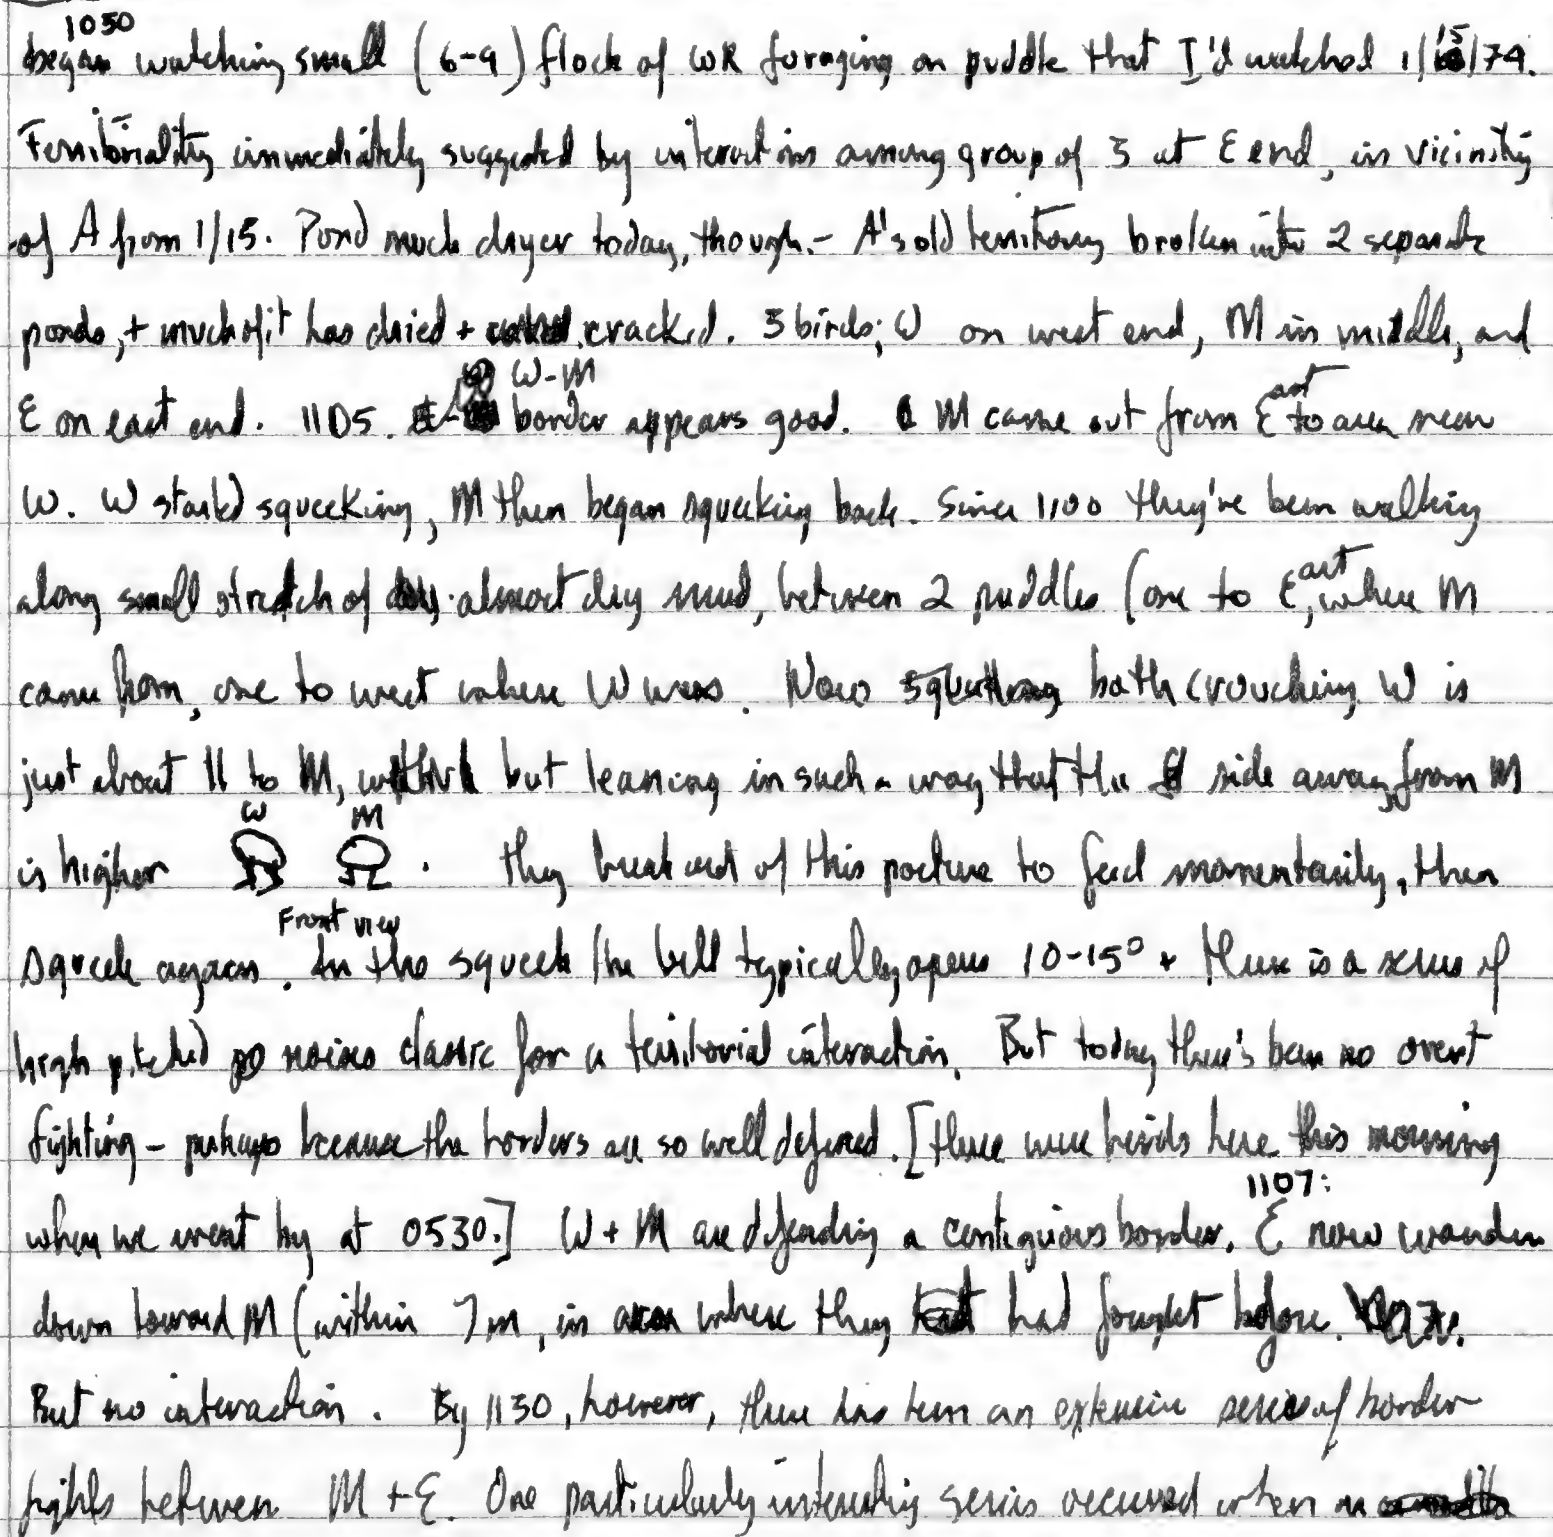 1050
began watching small (6-9) flock of WR foraging on puddle that I'd watched 1/15/74.
Territoriality immediately suggested by interactions among group of 3 at E end, in vicinity
of A from 1/15. Pond much dryer today, though - A's old territory broken into 2 separate
ponds, + much of it has dried + cracked. 3 birds; W on west end, M in middle, and
E on east end. 1105. W-M border appears good. M came out from East to area near
W. W started squeeking, M then began squeeking back. Since 1100 they've been walking
along small stretch of almost dry mud, between 2 puddles (one to East, where M
came from, one to west where W was. Now both crouching W is
just about || to M, but leaning in such a way that the side away from M
is higher W M . they break out of this posture to feed momentarily, then
Front view
squeek again. In the squeek the bill typically opens 10-15° + there is a series of
high pitched noises classic for a territorial interaction. But today there's been no overt
fighting - perhaps because the borders are so well defined. [there were birds here this morning
when we went by at 0530.] W + M are defending a contiguous border. 1107: E now wanders
down toward M (within 7m, in area where they had fought before.
But no interaction. By 1130, however, there has been an extensive series of border
fights between M + E. One particularly interesting series occurred when